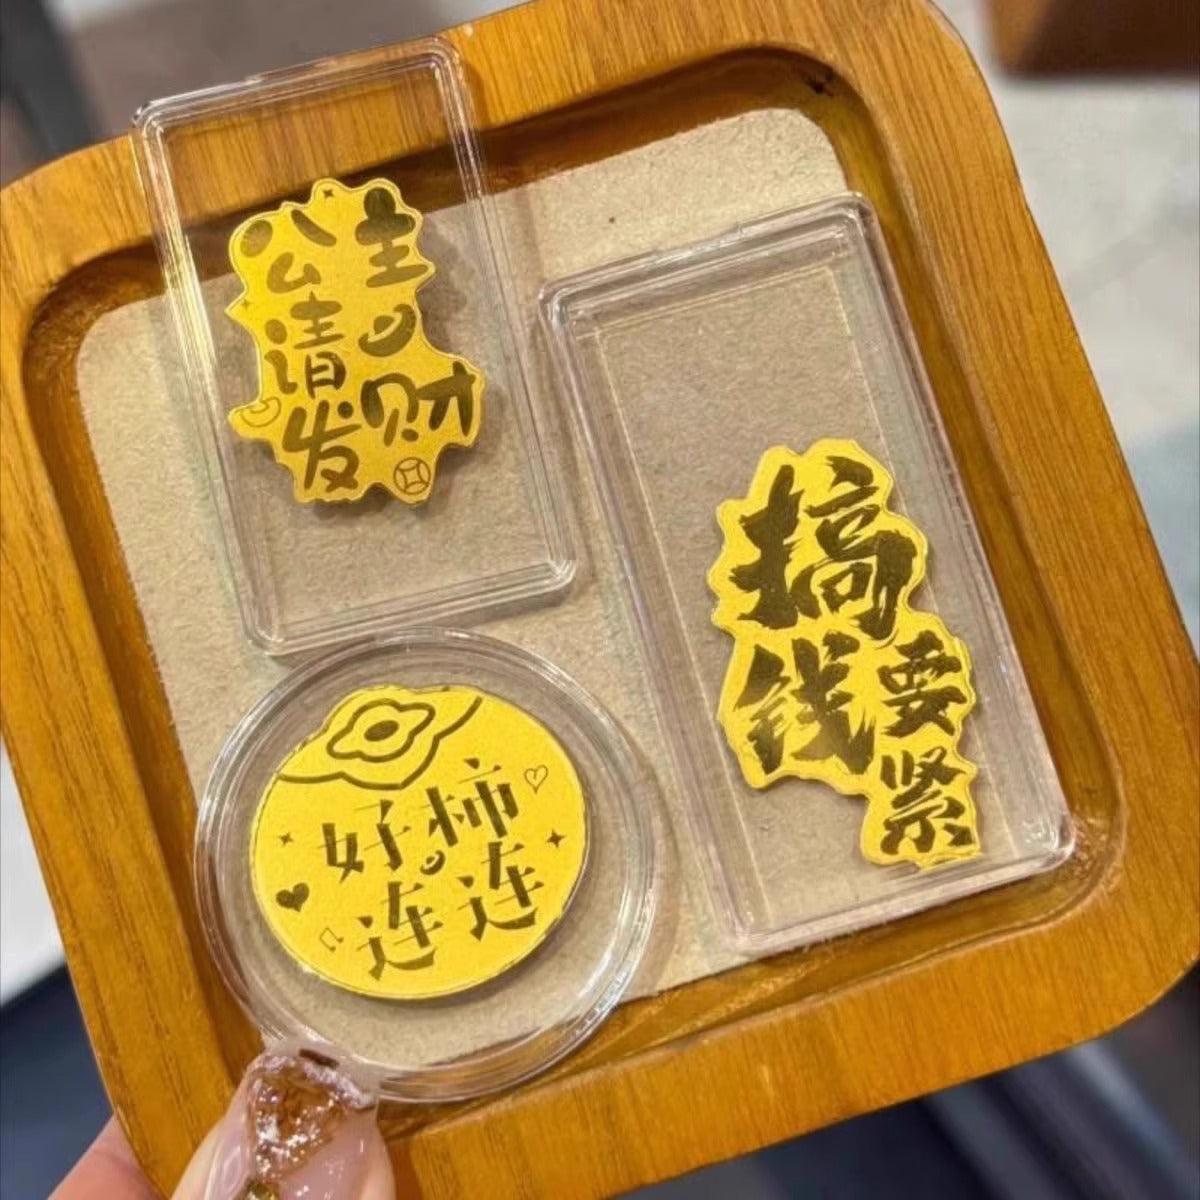 公主
请
发财
搞
钱要
紧
好柿
连连